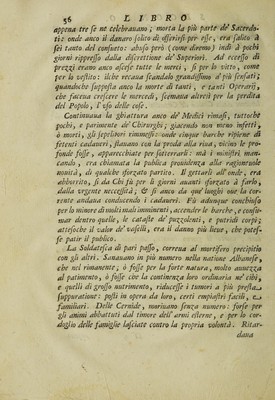 56 LIBRO
appena tre se ne celebrauano; morta la più parte de' Sacerdo-
ti: onde anco il danaro solito di offerirsi per esse, era salito à
sei tanto del consueto: abuso però (come diremo) indi à pochi
giorni ripresso dalla discrettione de' Superiori. Ad eccesso di
prezzi erano anco ascese tutte le merci, sì per lo vitto, come
per lo vestito: ilche recaua scandalo grandissimo a' più sensati;
quandoche supposta anco la morte di tanti, e tanti Operarij,
che faceua crescere le mercedi, scemaua altresì per la perdita
del Popolo, l'vso delle cose.
Continuaua la ghiattura anco de' Medici rimasti, tuttoche
pochi, e parimente de' Chirurghi; giacendo non meno infetti,
ò morti, gli sepelibori rimmessi: onde cinque barche ripiene di
fetenti cadaveri, stauano con la preda alla riua, vicino le pro-
fonde fosse, apparecchiate per sotterrarli: mà i ministri man-
cando, era chiamata la publica prouidenza alla ragioneuole
nouità, di qualche sforzato partito. Il gettarli all'onde, era
abborrito, sì da Chi fù per li giorni auanti sforzato à farlo
dalla vrgente necessità; e sì anco da que' luoghi oue la cor-
rente andaua conducendo i cadaveri. Fù adunque conchiuso
per lo minore di molti mali imminenti, accender le barche, e consu-
mar dentro quelle, le cataste de' puzzolenti, e putridi corpi;
attesoche il valor de' vaselli, era il danno più lieue, che potes-
se patir il publico.
La Soldatesca di pari passo, correua al mortifero precipitio
con gli altri. Sanauano in più numero nella natione Albanese,
che nel rimanente; ò fosse per la forte natura, molto auuezza
al patimento, ò fosse che la continenza loro ordinaria ne' cibi,
e quelli di grosso nutrimento, riducesse i tumori a più presta
suppuratione: posti in opera da loro, certi empiastri facili, e
familiari. Delle Cernide, moriuano senza numero: forse per
gli animi abbattuti dal timore dell'armi esterne, e per lo cor-
doglio delle famiglie lasciate contro la propria volontà. Ritar-
dana